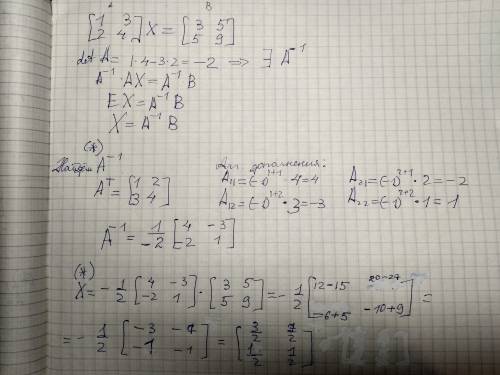 A B
[1 3; 2 4] X = [3 5; 5 9]
det A = 1·4-3·2 = -2 ⇒ ∃ A⁻¹
A⁻¹ A X = A⁻¹ B
E X = A⁻¹ B
X = A⁻¹ B
(*)
Найдём A⁻¹
Aᵀ = [1 2; 3 4]
дополнения:
A₁₁ = (-1)¹⁺¹ · 4 = 4
A₁₂ = (-1)¹⁺² · 3 = -3
A₂₁ = (-1)²⁺¹ · 2 = -2
A₂₂ = (-1)²⁺² · 1 = 1
A⁻¹ = 1/-2 [4 -3; -2 1]
(*)
X = -1/2 [4 -3; -2 1] · [3 5; 5 9] = -1/2 [12-15 20-27; -6+5 -10+9] =
= -1/2 [-3 -7; -1 -1] = [3/2 7/2; 1/2 1/2]